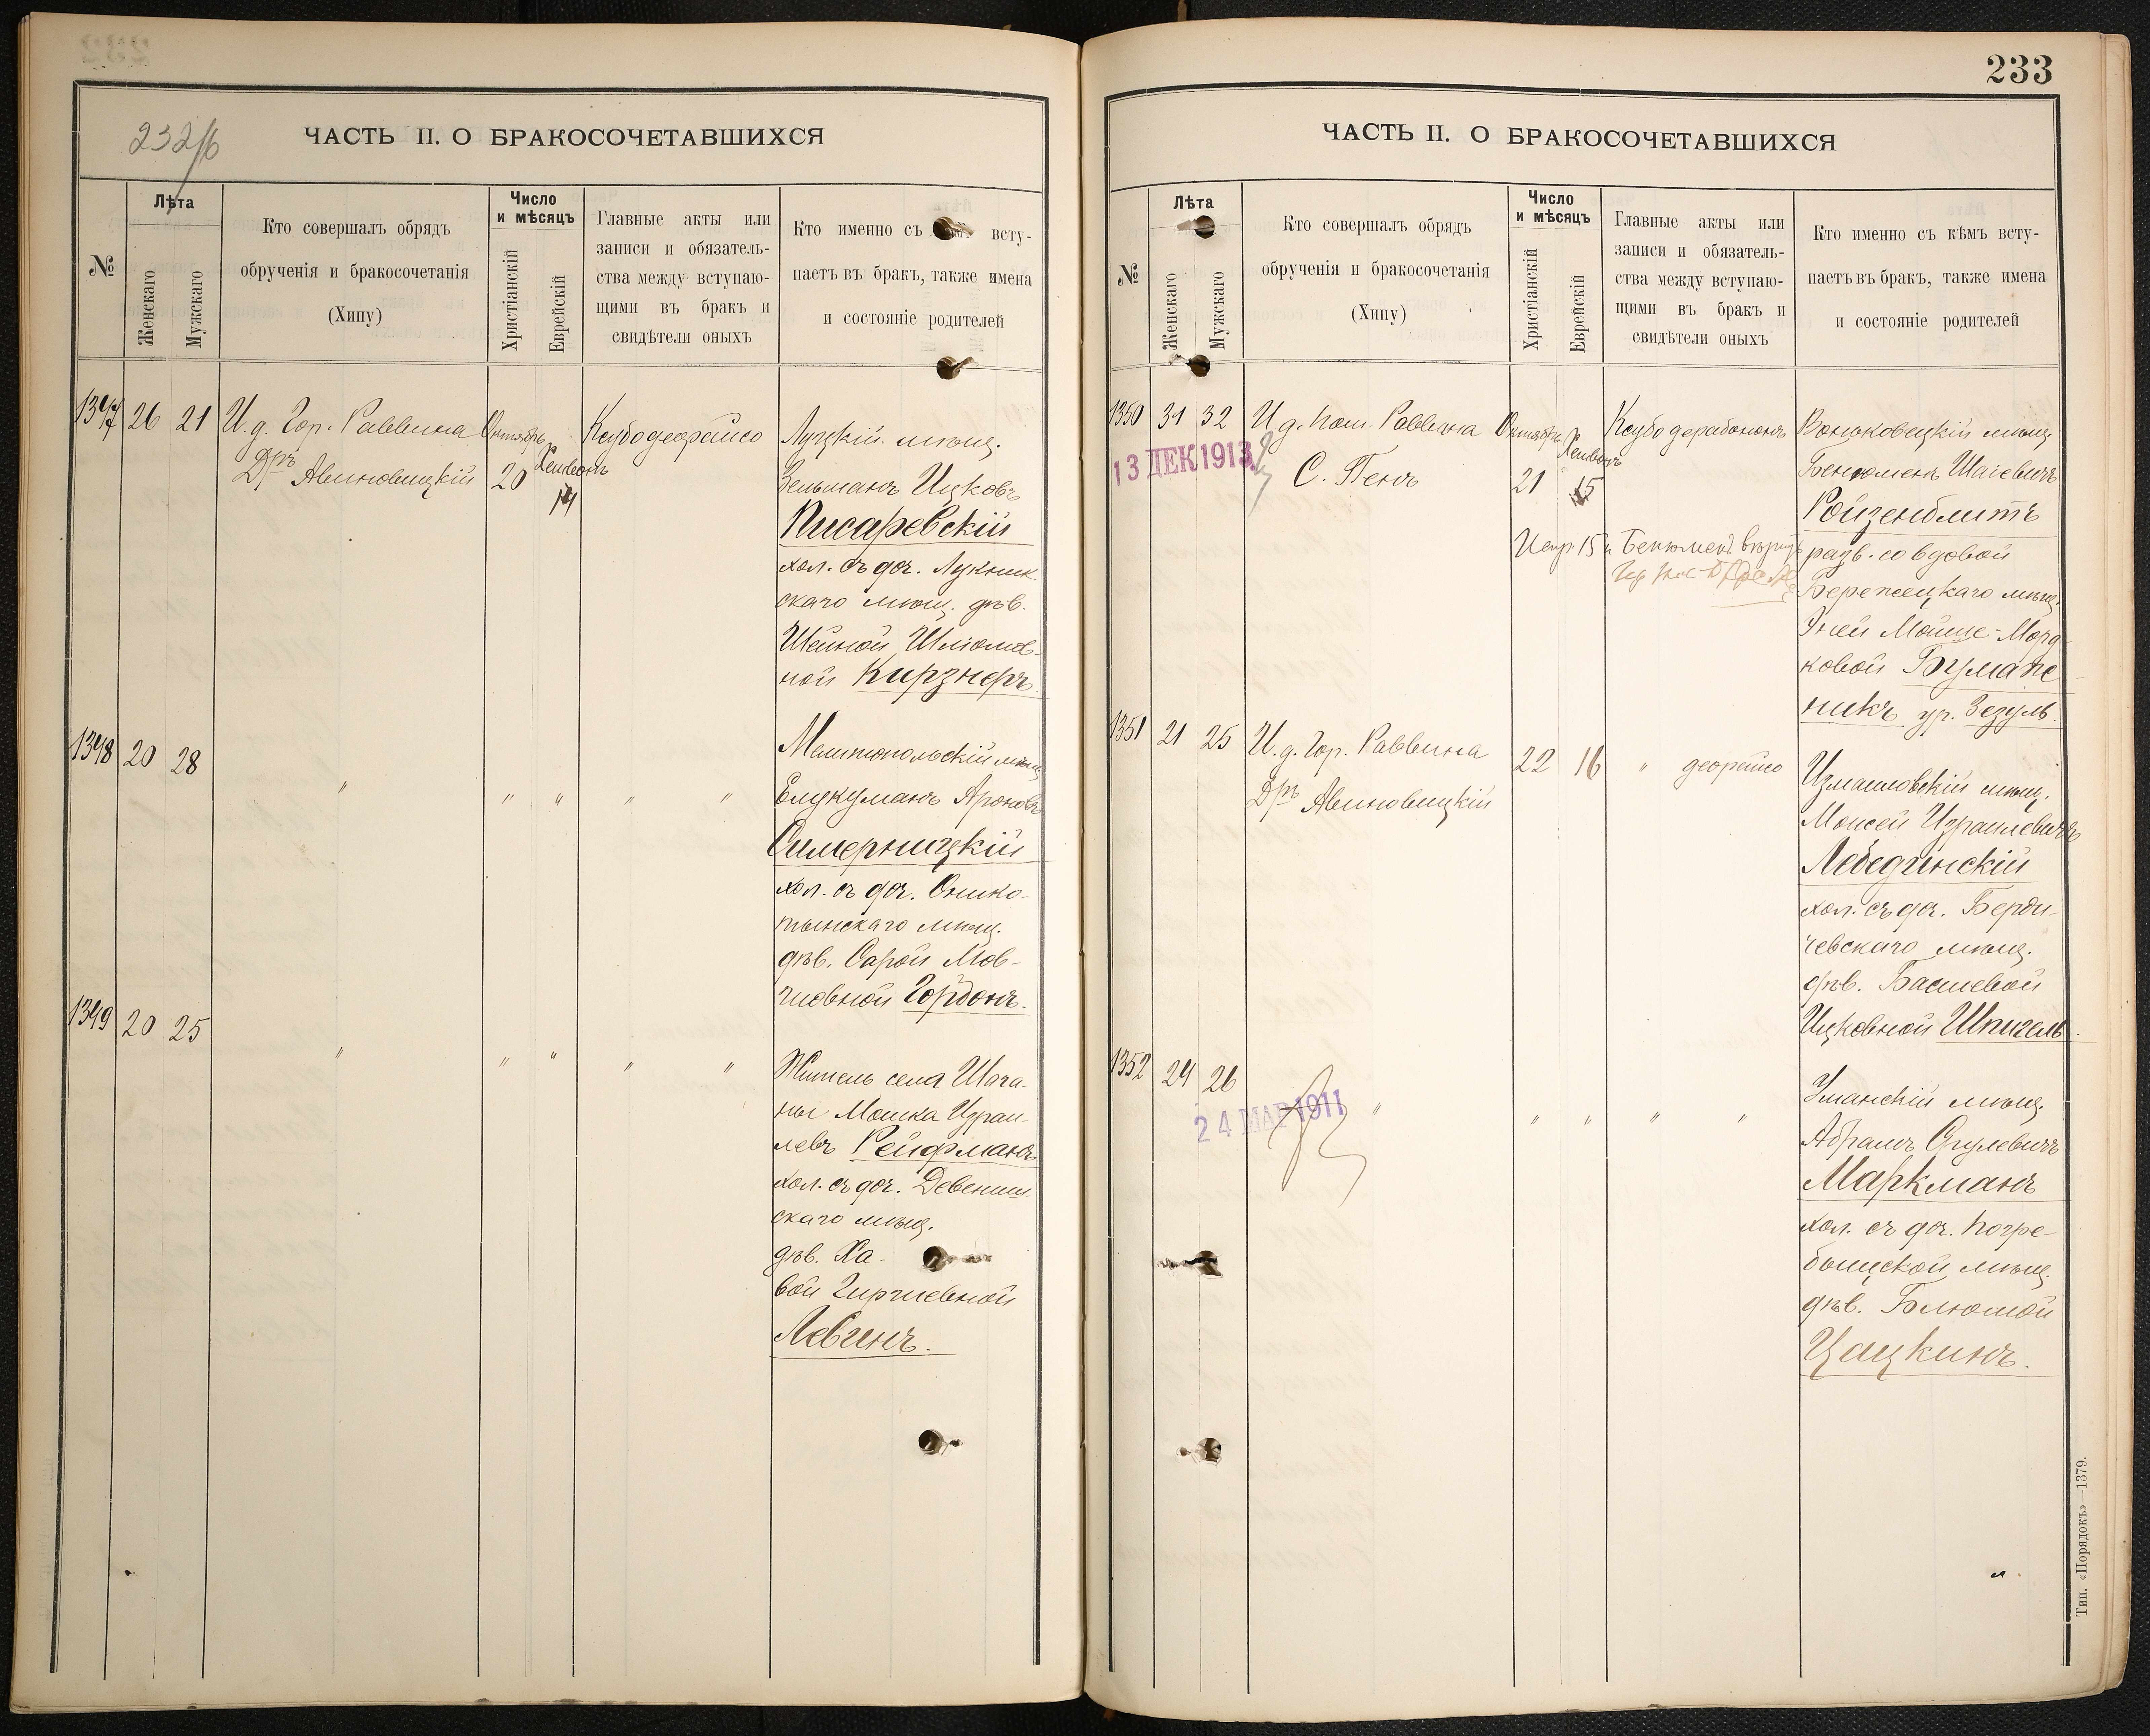 232/б
ЧАСТЬ II. О БРАКОСОЧЕТАВШИХСЯ
№
Лѣта
Женскаго
Мужскаго
Кто совершалъ обрядъ
обрученія и бракосочетанія
(Хипу)
Число
и мѣсяцъ
Христіанскій
Еврейскій
Главные акты или
записи и обязатель-
ства между вступаю-
щими въ бракъ и
свидѣтели оныхъ
Кто именно съ всту-
паетъ въ бракъ, также имена
и состояніе родителей
1347 26 21 И. д. Гор. Раввина Октябрь Хешвонъ
Дръ Авиновицкій 20 14
Луцкій мѣщ.
Зельманъ Ицковъ
Писаревскій
хол. съ доч.
скаго мѣщ. дѣв.
Шейной Шліомов-
ной Кирзнеръ
1348 20 28 " " " " "
мѣщ
Ароновъ
Симерницкій
хол. съ доч.
скаго мѣщ.
дѣв. Сарой Мов-
Гордонъ.
1349 20 25 " " " " "
Житель села Шага-
ны Мошка Израи-
левъ Рейфманъ
хол. съ доч. Девениш
скаго мѣщ.
дѣв. Ха-
вой Гиршевной
Левинъ.
233
ЧАСТЬ II. О БРАКОСОЧЕТАВШИХСЯ
№
Лѣта
Женскаго
Мужскаго
Кто совершалъ обрядъ
обрученія и бракосочетанія
(Хипу)
Число
и мѣсяцъ
Христіанскій
Еврейскій
Главные акты или
записи и обязатель-
ства между вступаю-
щими въ бракъ и
свидѣтели оныхъ
Кто именно съ кѣмъ всту-
паетъ въ бракъ, также имена
и состояніе родителей
1350 31 32 И. д. Пом. Раввина Октябрь Хешвонъ
13 ДЕК 1913
С. Пенъ 21 15
Воньковецкій мѣщ.
Бенюменъ Шаевичъ
Ройзенблитъ
разв. со вдовой
мѣщ.
Мойше-Морд
ковой
никъ ур.
1351 21 25 И. д. Гор. Раввина 22 16 "
Дръ Авиновицкій
Измаиловскій мѣщ.
Моисей Израилевичъ
Лебединскій
хол. съ доч. Берди-
чевскаго мѣщ.
дѣв. Басшевой
Ицковной Шпигель.
1352 24 26 " " " " "
24 МАР 1911
Уманскій мѣщ.
Абрамъ Срулевичъ
Маркманъ
хол. съ доч. Погре-
бищской мѣщ.
дѣв. Блюмой
Цацкинъ.
Тип. «Порядокъ»—1379.